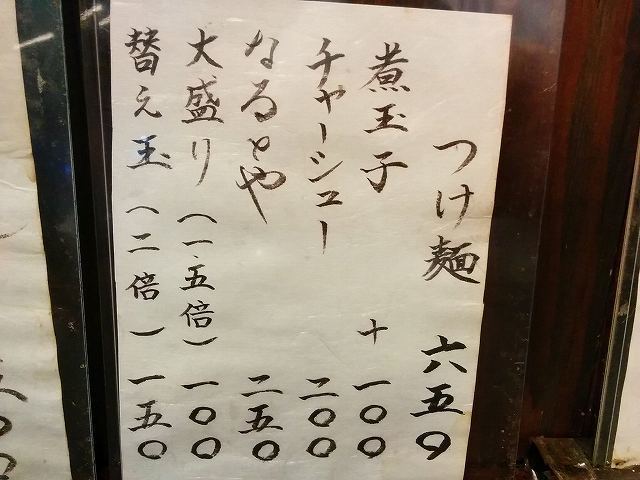 つけ麺 六五〇
煮玉子 +一〇〇
チャーシュー 二〇〇
なるとや 二五〇
大盛り(一.五倍) 一〇〇
替え玉(二倍) 一五〇